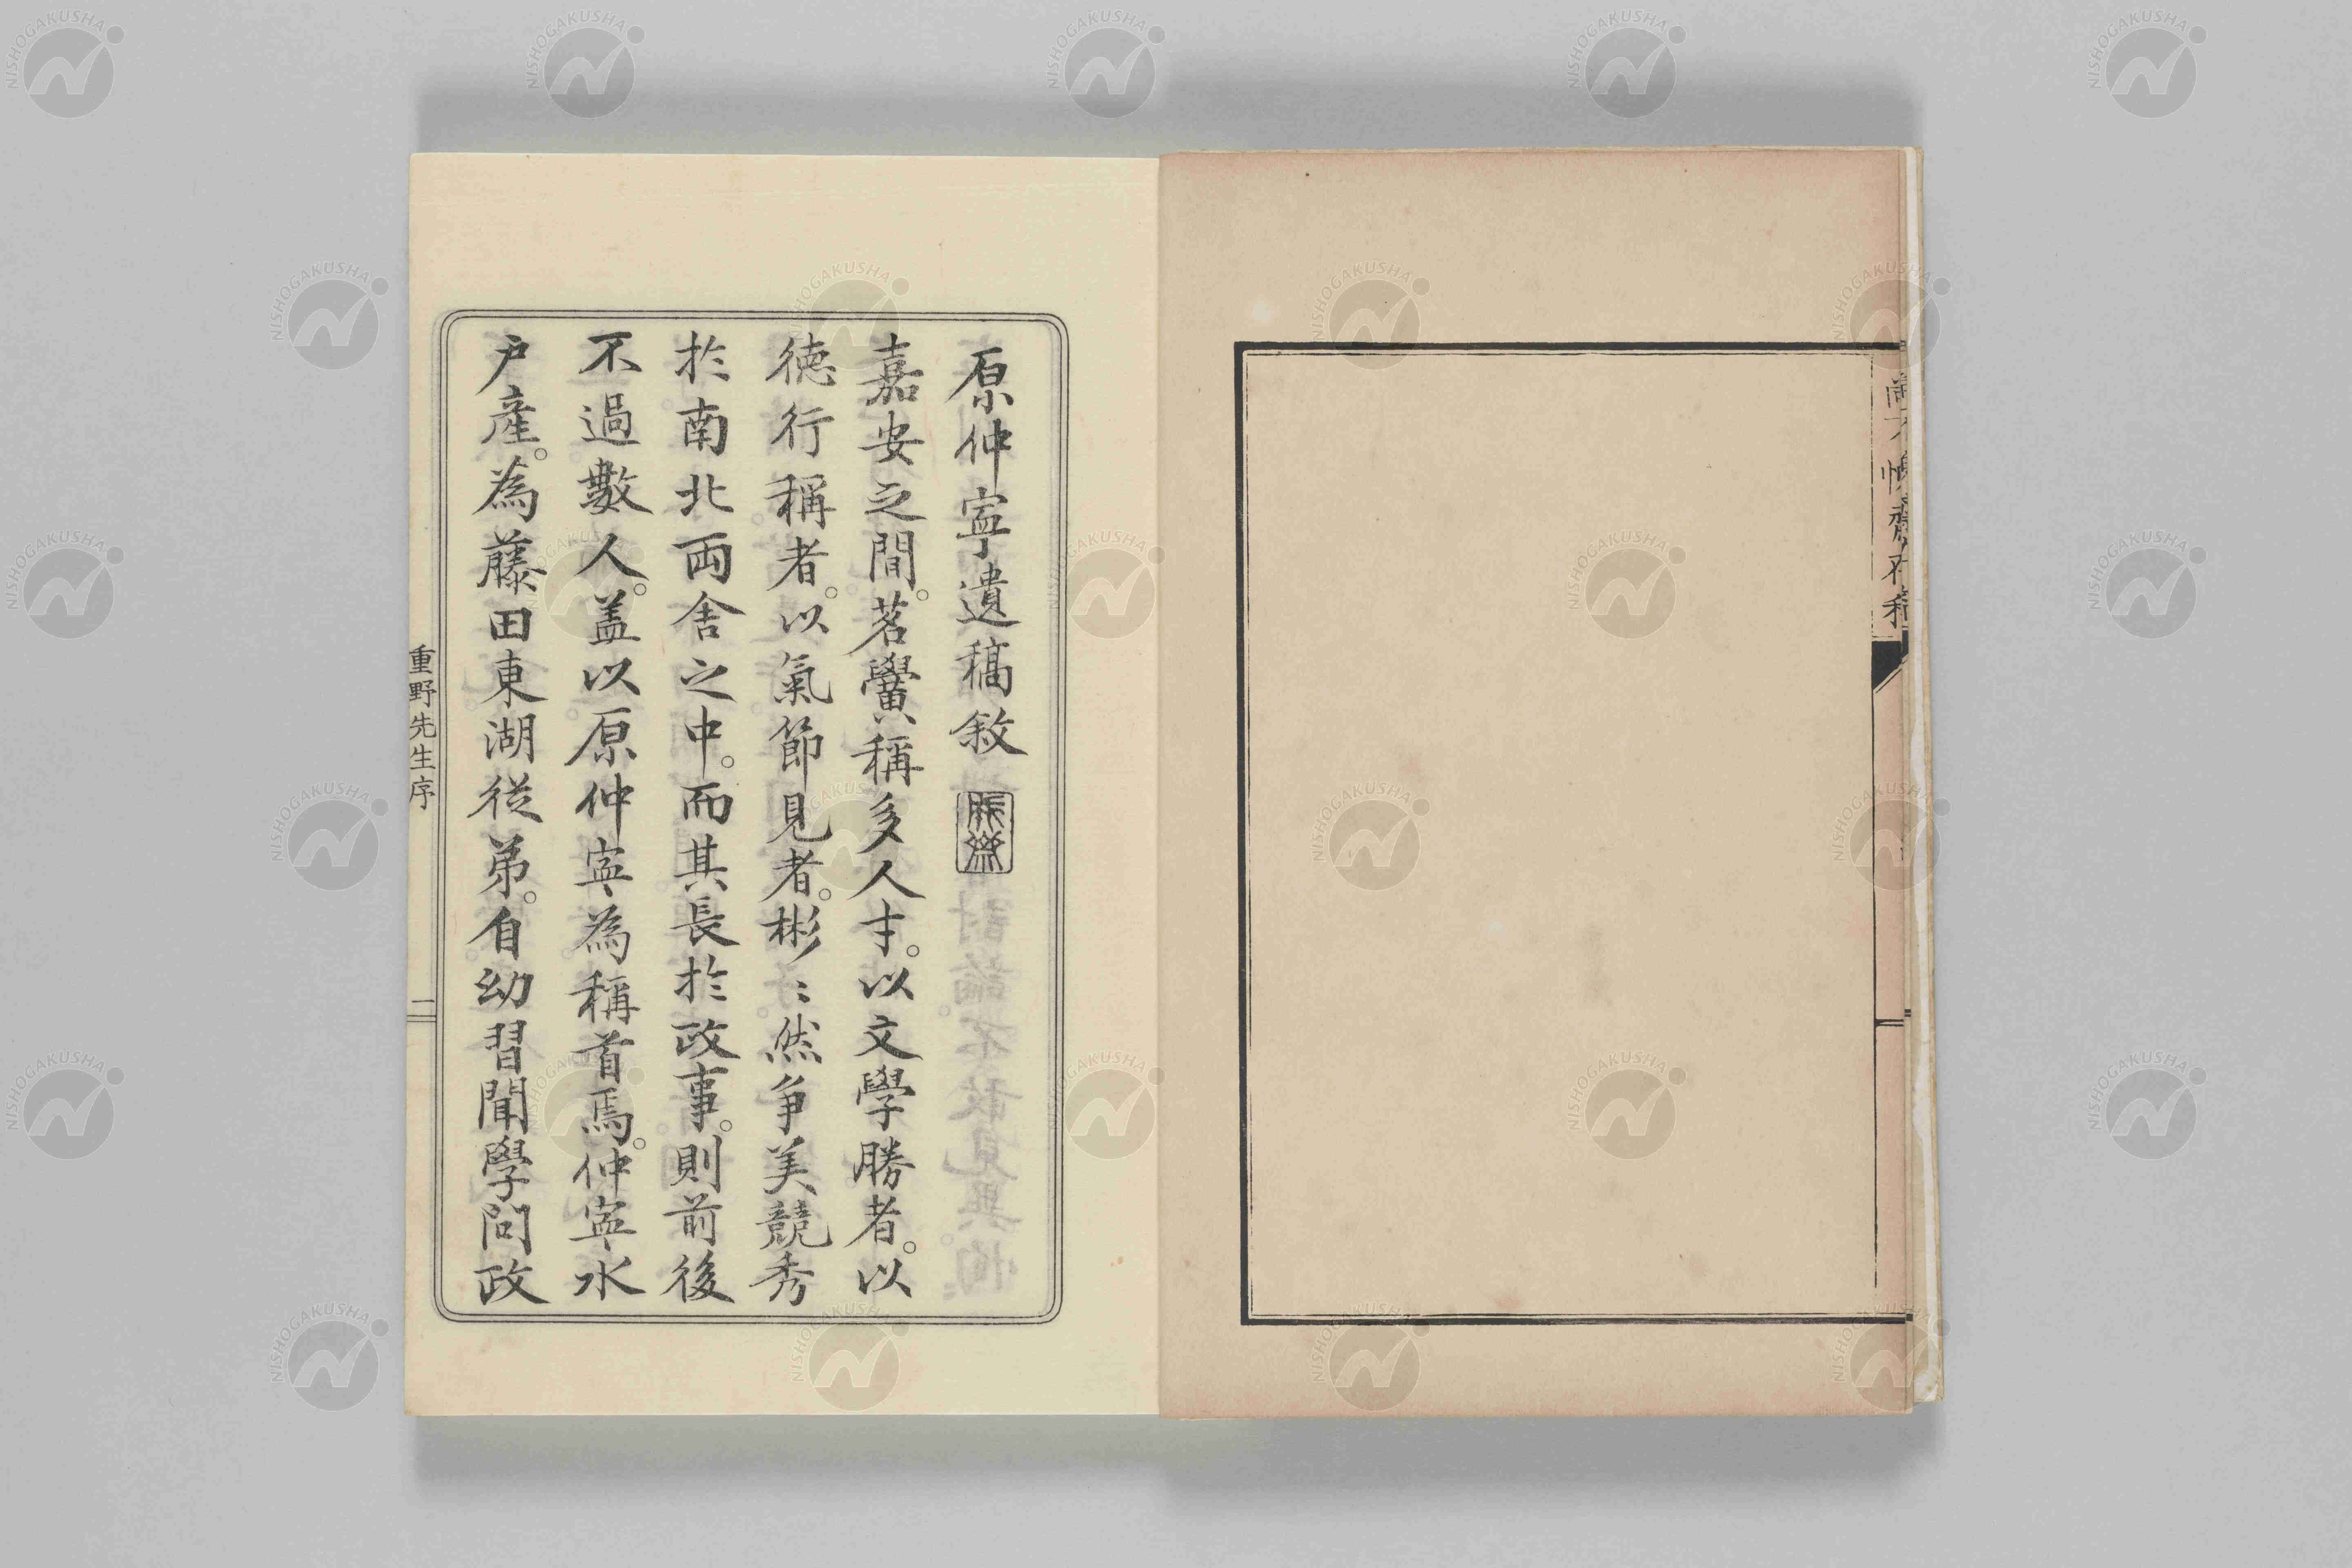 尚不愧齋存稿
原仲寧遺稿敘
嘉安之間。茗黌稱多人才。以文學勝者。以
德行稱者。以氣節見者。彬〻然爭美競秀
於南北両舎之中。而其長於政事。則前後
不過數人。盖以原仲寧為稱首焉。仲寧水
戸産。為藤田東湖従弟。自幼習聞學問政
重野先生序
一
NISHOGAKUSHA